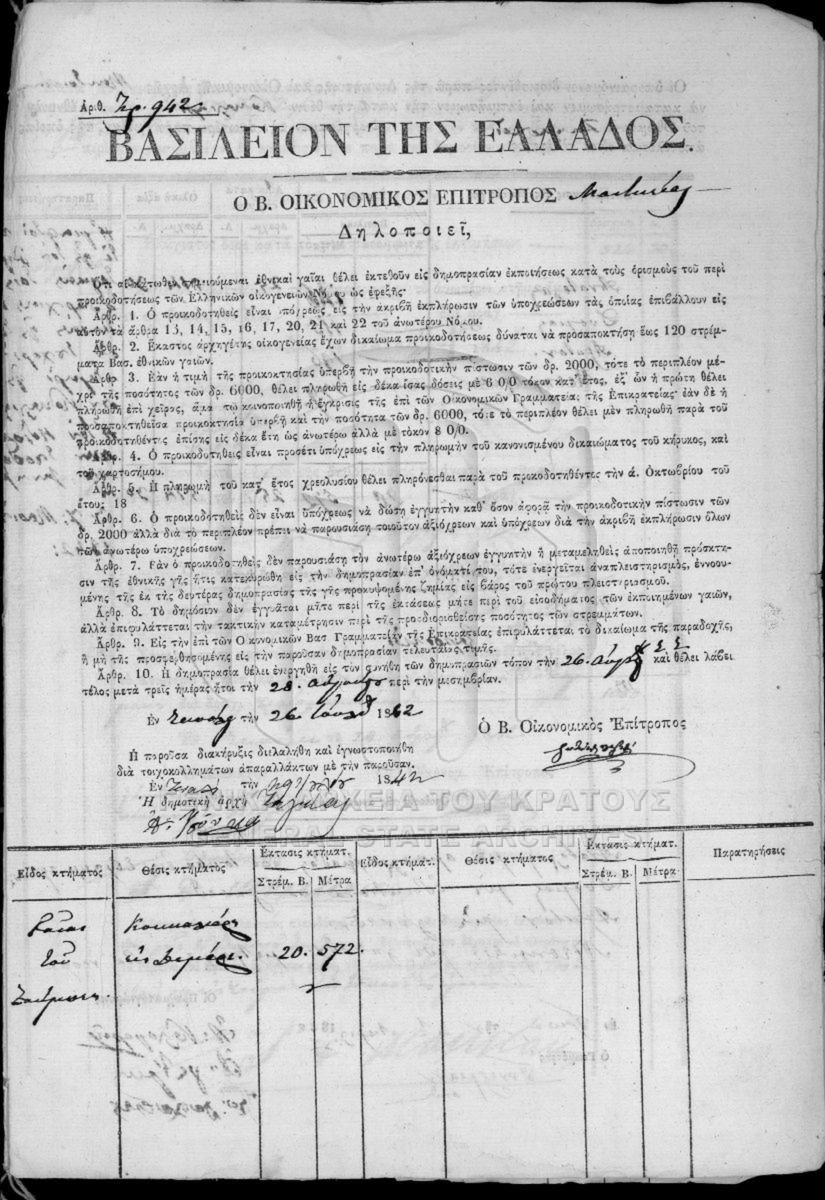 Ἀριθ. Πρ. 942
ΒΑΣΙΛΕΙΟΝ ΤΗΣ ΕΛΛΑΔΟΣ.
Ὁ Β. ΟΙΚΟΝΟΜΙΚΟΣ ΕΠΙΤΡΟΠΟΣ
Δηλοποιεῖ,
Ὅτι αἱ κάτωθι σημειούμεναι ἐθνικαὶ γαῖαι θέλει ἐκτεθοῦν εἰς δημοπρασίαν ἐκποιήσεως κατὰ τοὺς ὁρισμοὺς τοῦ περὶ
προικοδοτήσεως τῶν Ἑλληνικῶν οἰκογενειῶν Νόμου ὡς ἐφεξῆς·
Ἄρθρ. 1. Ὁ προικοδοτηθεὶς εἶναι ὑπόχρεως εἰς τὴν ἀκριβῆ ἐκπλήρωσιν τῶν ὑποχρεώσεων τὰς ὁποίας ἐπιβάλλουν εἰς
αὐτὸν τὰ ἄρθρα 13, 14, 15, 16, 17, 20, 21 καὶ 22 τοῦ ἀνωτέρου Νόμου.
Ἄρθρ. 2. Ἕκαστος ἀρχηγέτης οἰκογενείας ἔχων δικαίωμα προικοδοτήσεως δύναται νὰ προσαποκτήσῃ ἕως 120 στρέμ-
ματα Βασ. ἐθνικῶν γαιῶν.
Ἄρθρ. 3. Ἐὰν ἡ τιμὴ τῆς προικοκτησίας ὑπερβῇ τὴν προικοδοτικὴν πίστωσιν τῶν δρ. 2000, τότε τὸ περιπλέον μέ-
χρι τῆς ποσότητος τῶν δρ. 6000, θέλει πληρωθῆ εἰς δέκα ἴσας δόσεις μὲ 6 0/0 τόκον κατ' ἔτος, ἐξ ὧν ἡ πρώτη θέλει
πληρωθῆ ἐπὶ χεῖρας, ἅμα τῷ κοινοποιηθῇ ἡ ἔγκρισις τῆς ἐπὶ τῶν Οἰκονομικῶν Γραμματείας τῆς Ἐπικρατείας· ἐὰν δὲ ἡ
προσαποκτηθεῖσα προικοκτησία ὑπερβῇ καὶ τὴν ποσότητα τῶν δρ. 6000, τότε τὸ περιπλέον θέλει μὲν πληρωθῆ παρὰ τοῦ
προικοδοτηθέντος ἐπίσης εἰς δέκα ἔτη ὡς ἀνωτέρω ἀλλὰ μὲ τόκον 8 0/0.
Ἄρθρ. 4. Ὁ προικοδοτηθεὶς εἶναι προσέτι ὑπόχρεως εἰς τὴν πληρωμὴν τοῦ κανονισμένου δικαιώματος τοῦ κήρυκος, καὶ
τοῦ χαρτοσήμου.
Ἄρθρ. 5. Ἡ πληρωμὴ τοῦ κατ' ἔτος χρεολυσίου θέλει πληρόνεσθαι παρὰ τοῦ προικοδοτηθέντος τὴν ά. Ὀκτωβρίου τοῦ
ἔτους 18
Ἄρθρ. 6. Ὁ προικοδοτηθεὶς δὲν εἶναι ὑπόχρεως νὰ δώσῃ ἐγγυητὴν καθ' ὅσον ἀφορᾷ τὴν προικοδοτικὴν πίστωσιν τῶν
δρ. 2000 ἀλλὰ διὰ τὸ περιπλέον πρέπει νὰ παρουσιάσῃ τοιοῦτον ἀξιόχρεων καὶ ὑπόχρεων διὰ τὴν ἀκριβῆ ἐκπλήρωσιν ὅλων
τῶν ἀνωτέρω ὑποχρεώσεων.
Ἄρθρ. 7. Ἐὰν ὁ προικοδοτηθεὶς δὲν παρουσιάσῃ τὸν ἀνωτέρω ἀξιόχρεων ἐγγυητὴν ἢ μεταμεληθεὶς ἀποποιηθῇ πρόσκτη-
σιν τῆς ἐθνικῆς γῆς ἥτις κατεκυρώθη εἰς τὴν δημοπρασίαν ἐπ' ὀνόματί του, τότε ἐνεργεῖται ἀναπλειστηρισμὸς, ἐννοου-
μένης τῆς ἐκ τῆς δευτέρας δημοπρασίας τῆς γῆς προκυψομένης ζημίας εἰς βάρος τοῦ πρώτου πλειστηριασμοῦ.
Ἄρθρ. 8. Τὸ δημόσιον δὲν ἐγγυᾶται μήτε περὶ τῆς ἐκτάσεως μήτε περὶ τοῦ εἰσοδήματος τῶν ἐκποιημένων γαιῶν,
ἀλλὰ ἐπιφυλάττεται τὴν τακτικὴν καταμέτρησιν περὶ τῆς προσδιορισθείσης ποσότητος τῶν στρεμμάτων.
Ἄρθρ. 9. Εἰς τὴν ἐπὶ τῶν Οἰκονομικῶν Βασ Γραμματείαν τῆς Ἐπικρατείας ἐπιφυλάττεται τὸ δικαίωμα τῆς παραδοχῆς,
ἢ μὴ τῆς προσφερθησομένης εἰς τὴν παροῦσαν δημοπρασίαν τελευταίας τιμῆς.
Ἄρθρ. 10. Ἡ δημοπρασία θέλει ἐνεργηθῆ εἰς τὸν συνήθη τῶν δημοπρασιῶν τόπον τὴν 26. Αὐγούστου καὶ θέλει λάβει
τέλος μετὰ τρεῖς ἡμέρας ἤτοι τὴν 28. Αὐγούστου περὶ τὴν μεσημβρίαν.
Ἐν τὴν 26 Ἰουλίου 1842
Ὁ Β. Οἰκονομικὸς Ἐπίτροπος
Ἡ παροῦσα διακήρυξις διελαλήθη καὶ ἐγνωστοποιήθη
διὰ τοιχοκολλημάτων ἀπαραλλάκτων μὲ τὴν παροῦσαν.
Ἐν τὴν 1842
Ἡ δημοτικὴ ἀρχὴ
ΓΕΝΙΚΑ ΑΡΧΕΙΑ ΤΟΥ ΚΡΑΤΟΥΣ
GENERAL STATE ARCHIVES
Εἶδος κτήματος Θέσις κτήματος Ἔκτασις κτήματ. Εἶδος κτήματ. Θέσις κτήματος Ἔκτασις κτήματ. Παρατηρήσεις
Στρέμ. Β. Μέτρα Στρέμ. Β. Μέτρα
τοῦ 20. 572.